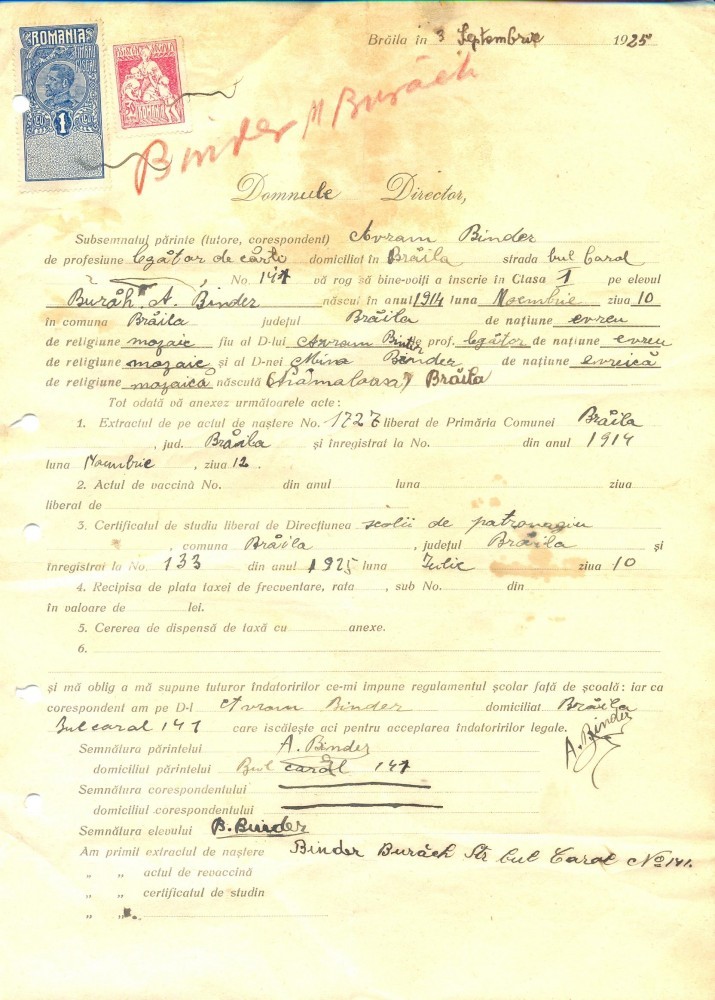 ROMANIA
TIMBRU FISCAL
1
50 ROMANIA
Brăila în 3 Septembrie 1925
Binder M Burăch
Domnule Director,
Subsemnatul părinte (tutore, corespondent) Avram Binder
de profesiune legător de cărti domiciliat în Brăila strada bul Carol
No. 141 vă rog să bine-voiți a înscrie în Clasa I pe elevul
Burăh A. Binder născut în anul 1914 luna Noembrie ziua 10
în comuna Brăila județul Brăila de națiune evreu
de religiune mozaic fiu al D-lui Avram Binder de prof. legător de națiune evreu
de religiune mozaic și al D-nei Mina Binder de națiune evreică
de religiune mozaică născută Brăila
Tot odată vă anexez următoarele acte :
1. Extractul de pe actul de naștere No. 1727 liberat de Primăria Comunei Brăila
, jud. Brăila și înregistrat la No. din anul 1914
luna Noembrie , ziua 12 .
2. Actul de vaccină No. din anul luna ziua
liberat de
3. Certificatul de studiu liberat de Direcțiunea scolii de patronagiu
, comuna Brăila , județul Brăila și
înregistrat la No. 133 din anul 1925 luna Iulie ziua 10
4. Recipisa de plata taxei de frecventare, rata , sub No. din
în valoare de lei.
5. Cererea de dispensă de taxă cu anexe.
6.
și mă oblig a mă supune tuturor îndatoririlor ce-mi impune regulamentul școlar față de școală : iar ca
corespondent am pe D-l Avram Binder domiciliat Brăila
Bul carol 141 care iscălește aci pentru acceptarea îndatoririlor legale.
A. Binder
Semnătura părintelui A. Binder
domiciliul părintelui Bul carol 141
Semnătura corespondentului
domiciliul corespondentului
Semnătura elevului B. Binder
Am primit extractul de naștere Binder Burăch Str bul Carol No 141.
„ „ actul de revaccină
„ „ certificatul de studin
„ „